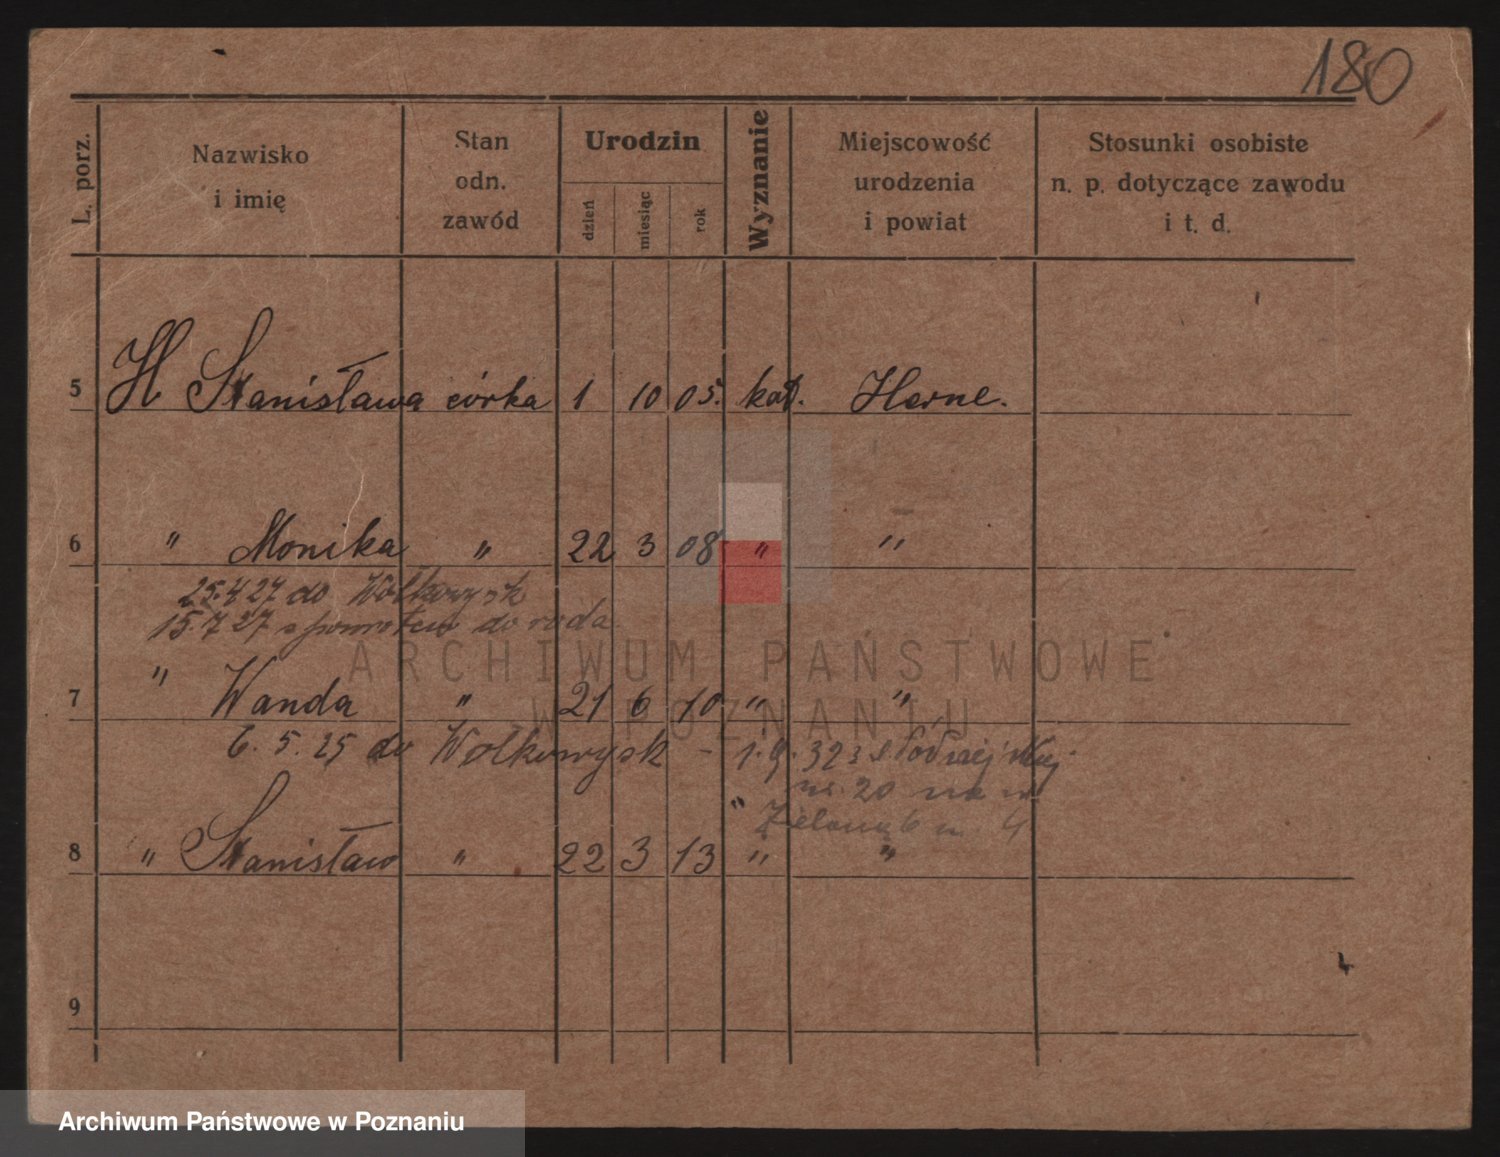 180
L. porz.
Nazwisko
i imię
Stan
odn.
zawód
Urodzin
dzień
miesiąc
rok
Wyznanie
Miejscowość
urodzenia
i powiat
Stosunki osobiste
n. p. dotyczące zawodu
i t. d.
5 H Stanisława córka 1 10 05. kat. Herne.
6 " Monika " 22 3 08 " "
25.4 27 do Wołkowysk
15.7 27 spowrotem do
7 " Wanda " 21 6 10 " "
6. 5. 25 do Wołkowysk - 1.9.32 z
nr. 20 na
Zieloną 6 m. 4
8 " Stanisław " 22 3 13 " "
9
ARCHIWUM PAŃSTWOWE
W POZNANIU
Archiwum Państwowe w Poznaniu